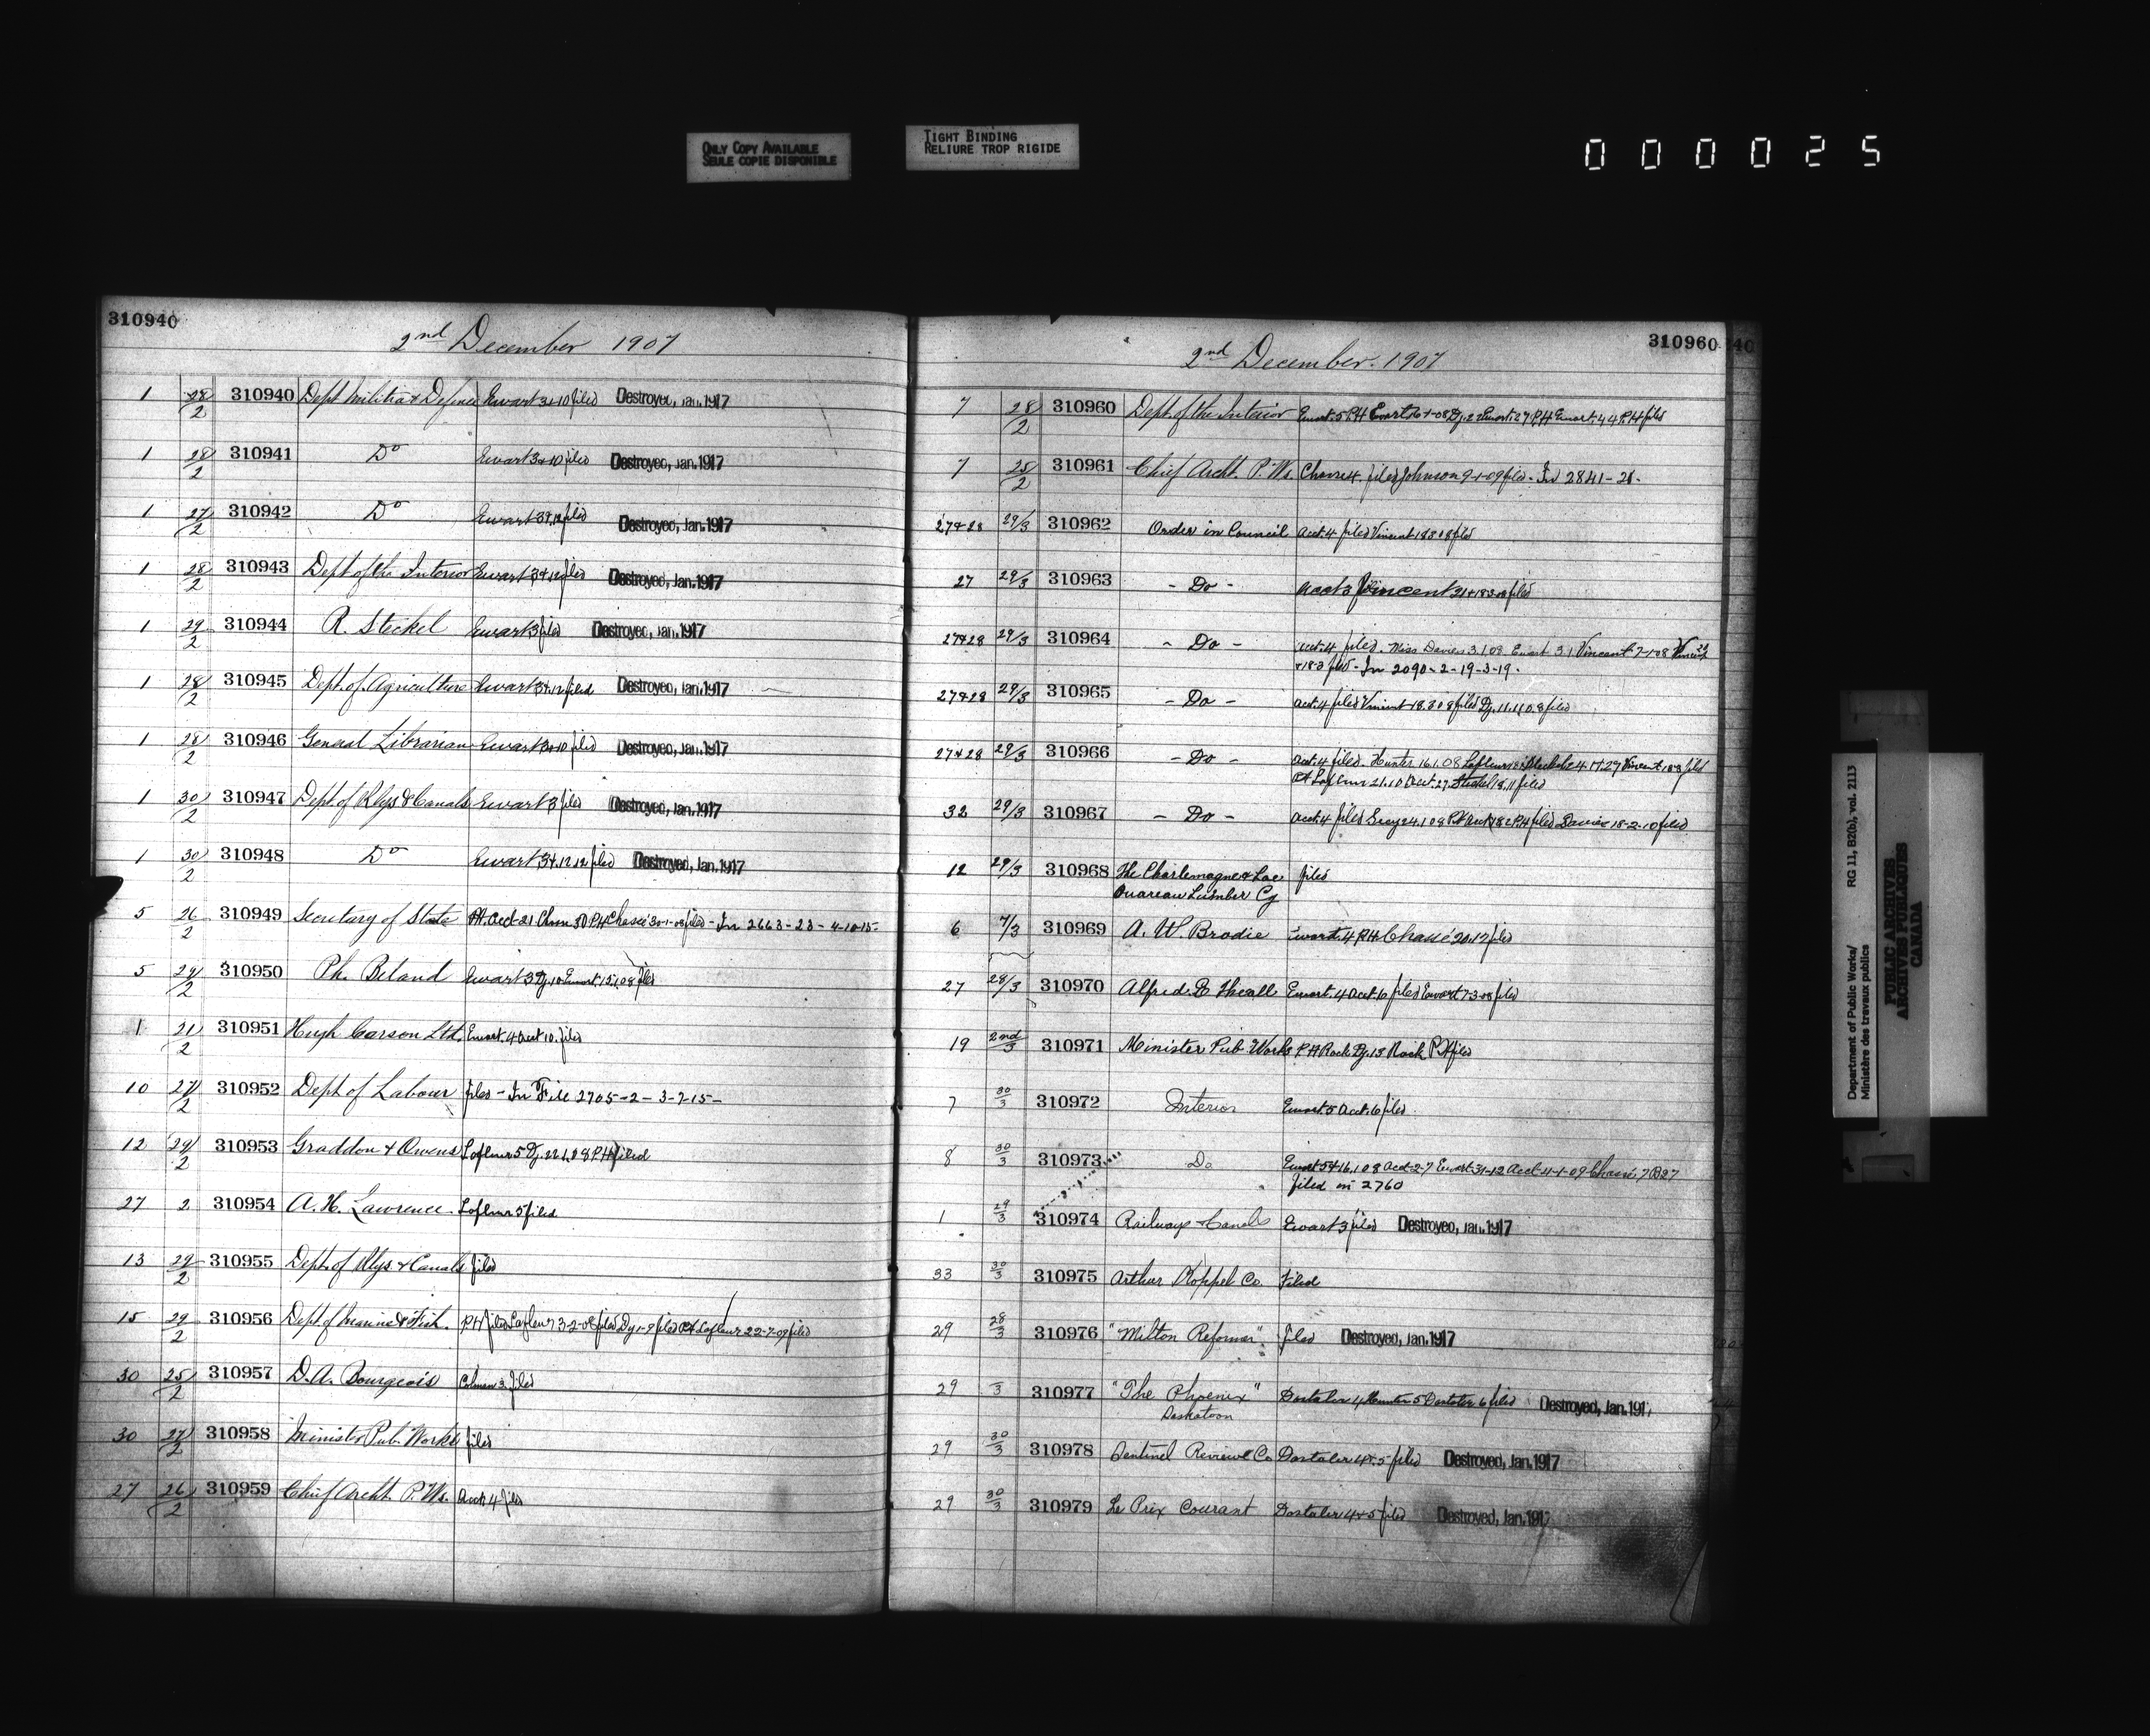 ONLY COPY AVAILABLE
SEULE COPIE DISPONIBLE
TIGHT BINDING
RELIURE TROP RIGIDE
000025
310940
2nd December 1907
1 28/2 310940 Dept Militia & Defence Ewart 3&10 filed Destroyed, Jan. 1917
1 28/2 310941 Do Ewart 3&10 filed Destroyed, Jan. 1917
1 27/2 310942 Do Ewart 3&12 filed Destroyed, Jan. 1917
1 28/2 310943 Dept of the Interior Ewart 3&12 filed Destroyed, Jan. 1917
1 29/2 310944 R. Steckel Ewart 3 filed Destroyed, Jan. 1917
1 28/2 310945 Dept. of Agriculture Ewart 3&12 filed Destroyed, Jan. 1917
1 28/2 310946 General Librarian Ewart 3&10 filed Destroyed, Jan. 1917
1 30/2 310947 Dept of Rlys & Canals Ewart 3 filed Destroyed, Jan. 1917
1 30/2 310948 Do Ewart 3&12 filed Destroyed, Jan. 1917
5 26/2 310949 Secretary of State PH. Acct 21 PH Chassé 30-1-08 filed - In 2663-23-4-10-15-
5 29/2 310950 Ph. Beland Ewart 3 Dy. 10 Ewart 15.1.08 filed
1 21/2 310951 Hugh Carson Ltd. Ewart. 4 Acct 10. filed
10 27/2 310952 Dept of Labour filed - In File 2705-2-3-7-15-
12 29/2 310953 Graddon & Owens Lafleur 5 Dy. PH filed
27 2 310954 A. H. Lawrence Lafleur 5 filed
13 29/2 310955 Dept. of Rlys & Canals filed
15 29/2 310956 Dept of Marine & Fish. PH filed Lafleur 3-2-08 filed Dy 1-9 filed PH Lafleur 22-7-09 filed
30 25/2 310957 D. A. Bourgeois 3. filed
30 27/2 310958 Minister Pub. Works filed
27 26/2 310959 Chief Archt. P. Ws. Acct 4 filed
310960
2nd December. 1907
7 28/2 310960 Dept. of the Interior Ewart. 5 PH Ewart 27 PH Ewart PH filed
7 25/2 310961 Chief Archt. P. Ws. Chassé 4. filed Johnson 9-1-09 filed - In 2841-21-
27&28 29/3 310962 Order in Council Acct. 4 filed Vincent 18 3 08 filed
27 29/3 310963 - Do - Acct 3 Vincent filed
27&28 29/3 310964 - Do - Acct. 4 filed. Miss Davies 3.1.08. Ewart 3.1 Vincent 7-1-08 Vincent
&18-3 filed - In 2090-2-19-3-19.
27&28 29/3 310965 - Do - Acct. 4 filed Vincent 18.3 08 filed Dy. 11.11.08 filed
27&28 29/3 310966 - Do - Acct. 4 filed. Hunter 16.1.08 Lafleur Vincent filed
PH Lafleur 21.10 Acct. 27 Steckel 18.11 filed
32 29/3 310967 - Do - Acct. 4 filed PH filed Davies 18-2-10 filed
12 29/3 310968 The Charlemagne & Lac filed
Ouareau Lumber Cy
6 7/3 310969 A. W. Brodie Ewart. 4 PH Chassé 20.12 filed
27 28/3 310970 Alfred. E Theall Ewart. 4 Acct. 6 filed Ewart 7-3-08 filed
19 2nd/3 310971 Minister Pub. Works PH Rock Dy. 13 Rock PH filed
7 30/3 310972 Interior Ewart. 5 Acct. 6 filed
8 30/3 310973 Do Ewart 5&16.1.08 Acct-2-7 Ewart-31-12 Acct-4-1-09 Chassé. 7
filed in 2760
1 29/3 310974 Railways & Canals Ewart 3 filed Destroyed, Jan. 1917
33 30/3 310975 Arthur Koppel Co. Filed
29 28/3 310976 "Milton Reformer" filed Destroyed, Jan. 1917
29 3 310977 "The Phoenix" Dostaler 4 Hunter 5 Dostaler 6 filed Destroyed, Jan. 191
Saskatoon
29 30/3 310978 Sentinel Review Co Dostaler 4&5 filed Destroyed, Jan. 1917
29 30/3 310979 Le Prix Courant Dostaler 4&5 filed Destroyed, Jan. 1917
Department of Public Works/
Ministère des travaux publics
RG 11, B2(b), vol. 2113
PUBLIC ARCHIVES
ARCHIVES PUBLIQUES
CANADA